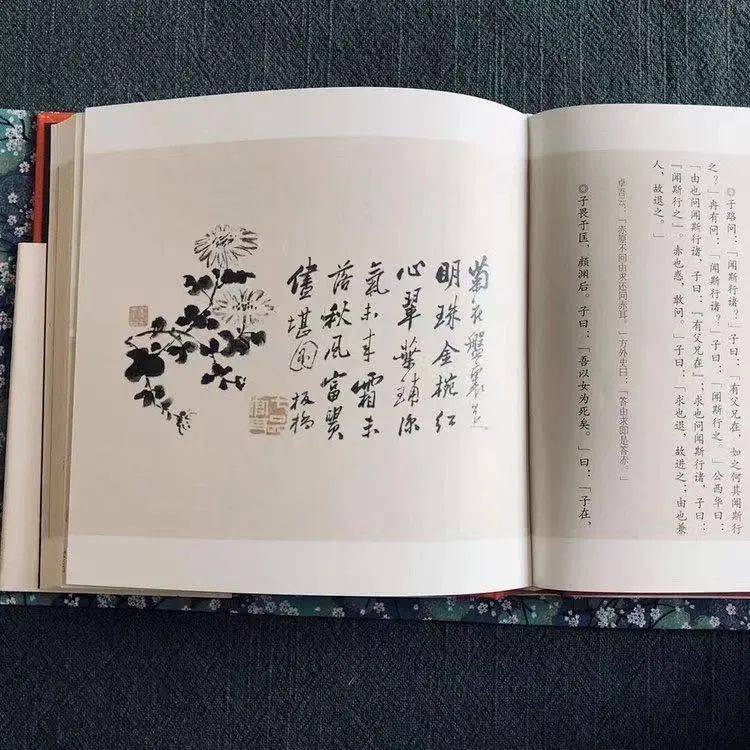 ◎子路问：「闻斯行诸？」子曰：「有父兄在，如之何其闻斯行
之？」冉有问：「闻斯行诸？」子曰：「闻斯行之。」公西华曰：
「由也问闻斯行诸，子曰：『有父兄在』；求也问闻斯行诸，子曰：
『闻斯行之』。赤也惑，敢问。」子曰：「求也退，故进之；由也兼
人，故退之。」
卓吾云：「赤原不问由求，还问赤耳。」方外史曰：「答由求即是答赤。」
◎子畏于匡，颜渊后。子曰：「吾以女为死矣。」曰：「子在，
菊花盤裏
明珠金椀红
心翠葉鋪涼
氣未来霜未
落秋風富貴
儘堪圖 板橋